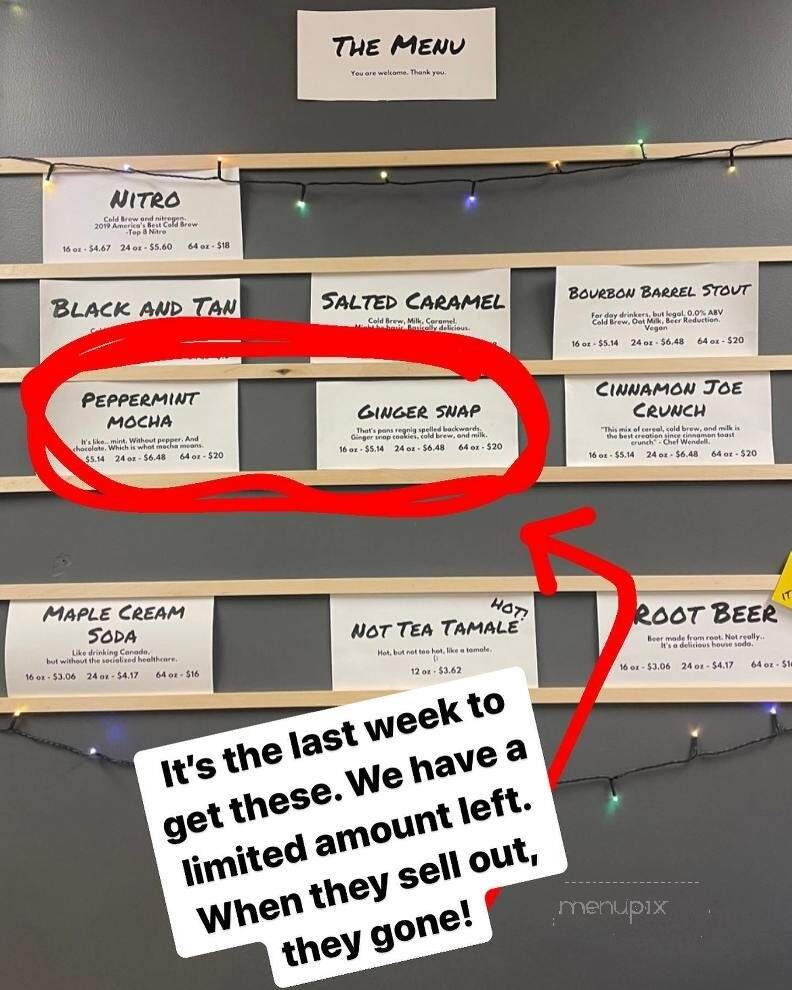 THE MENU
You are welcome. Thank you.
NITRO
Cold Brew and nitrogen.
2019 America's Best Cold Brew
-Top 8 Nitro
16 oz - $4.67 24 oz - $5.60 64 oz - $18
BLACK AND TAN
SALTED CARAMEL
Cold Brew, Milk, Caramel.
Might be basic. Basically delicious.
BOURBON BARREL STOUT
For day drinkers, but legal. 0.0% ABV
Cold Brew, Oat Milk, Beer Reduction.
Vegan
16 oz - $5.14 24 oz - $6.48 64 oz - $20
PEPPERMINT
MOCHA
It's like... mint. Without pepper. And
chocolate. Which is what mocha means.
$5.14 24 oz - $6.48 64 oz - $20
GINGER SNAP
That's pans regnig spelled backwards.
Ginger snap cookies, cold brew, and milk.
16 oz - $5.14 24 oz - $6.48 64 oz - $20
CINNAMON JOE
CRUNCH
"This mix of cereal, cold brew, and milk is
the best creation since cinnamon toast
crunch" - Chef Wendell.
16 oz - $5.14 24 oz - $6.48 64 oz - $20
MAPLE CREAM
SODA
Like drinking Canada,
but without the socialized healthcare.
16 oz - $3.06 24 oz - $4.17 64 oz - $16
HOT!
NOT TEA TAMALE
Hot, but not too hot, like a tamale.
12 oz - $3.62
ROOT BEER
Beer made from root. Not really..
It's a delicious house soda.
16 oz - $3.06 24 oz - $4.17 64 oz - $1
IT
It's the last week to
get these. We have a
limited amount left.
When they sell out,
they gone!
menupix